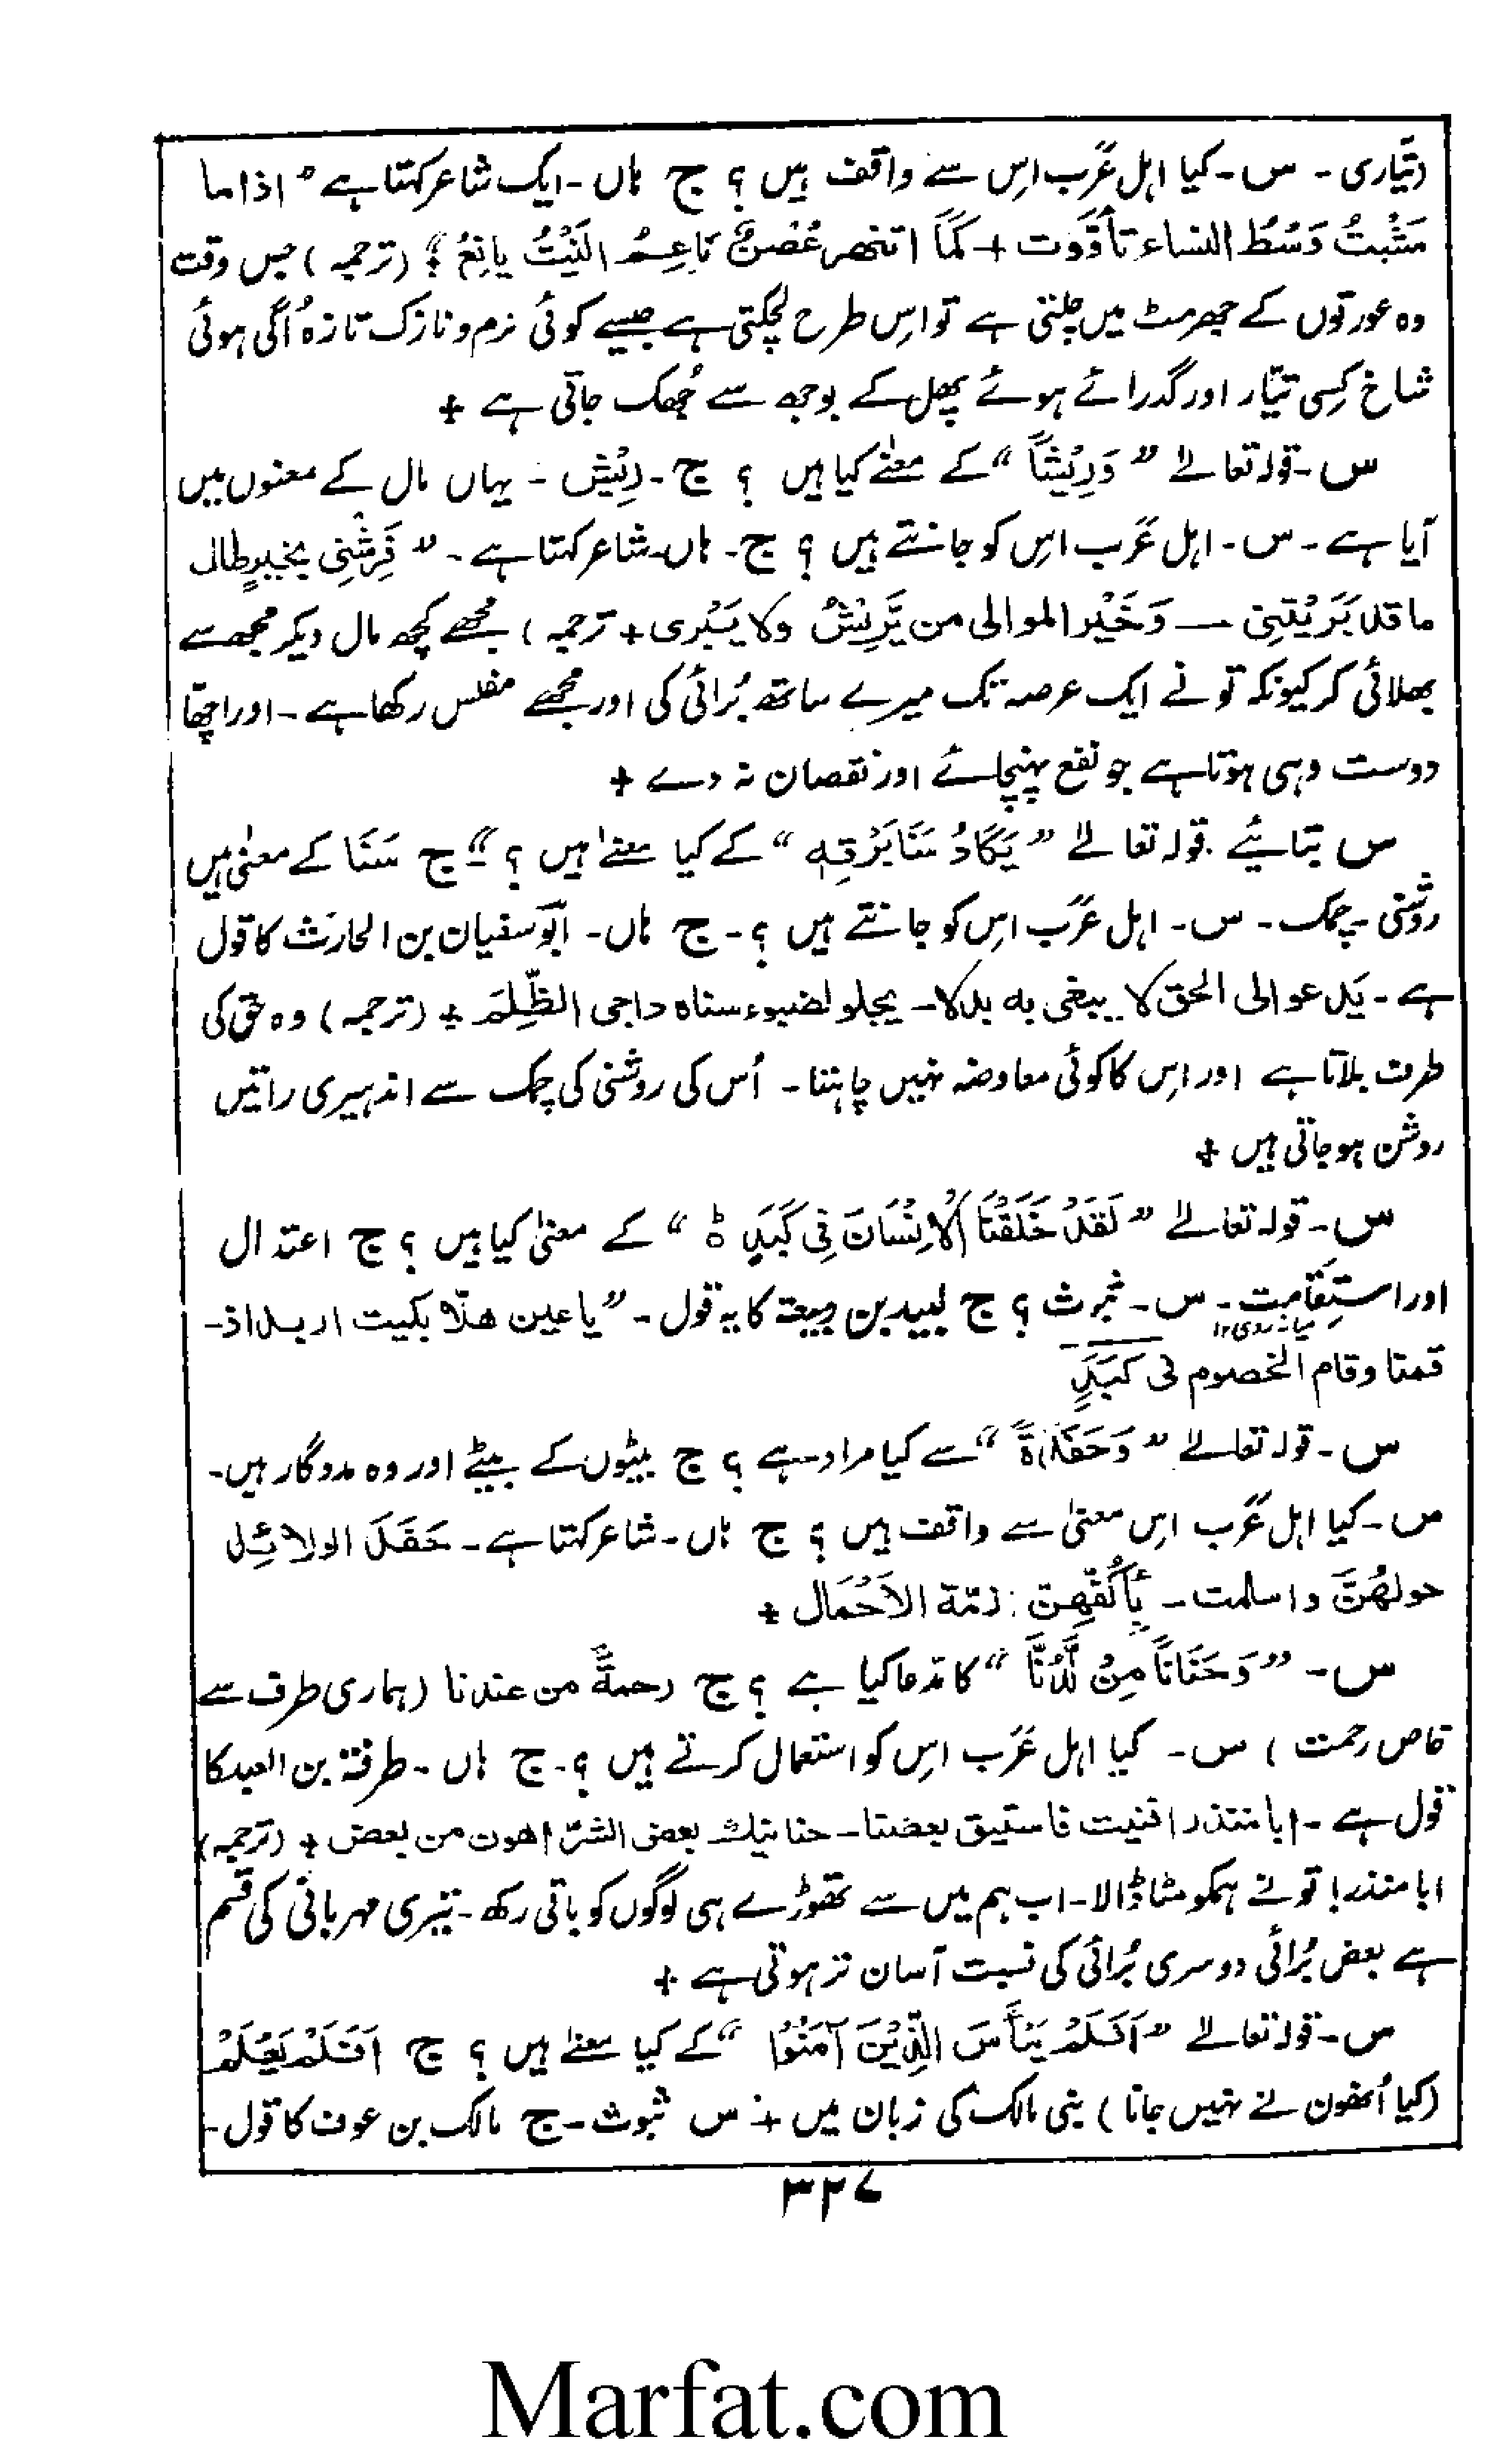 (تیّاری - س - کیا اہل عَرَب اِس سے واقف ہیں ؟ ج ہاں - ایک شاعر کہتا ہے " اذا ما
مَشَیتُ وَسُطَ النساء تأَوَّدَت + کَمَا اتنھر غُصنٌ نَاعِمُ النَّبْتُ یانِعُ ؟ (ترجمہ) جس وقت
وہ عورتوں کے جھرمٹ میں چلتی ہے تو اِس طرح لچکتی ہے جیسے کوئی نرم و نازک تازہ اُگی ہوئی
شاخ کِسی تیّار اور گدرائے ہوئے پھل کے بوجھ سے جُھک جاتی ہے +
س - قولہ تعالےٰ " وَرِیْشاً " کے معنےٰ کیا ہیں ؟ ج - رِیْش - یہاں مال کے معنوں میں
آیا ہے - س - اہل عَرَب اِس کو جانتے ہیں ؟ ج - ہاں شاعر کہتا ہے - " فَرِشْنِی بخیرٍ طال
ما قد بَرَیْتَنِی — وَخَیْر الموالی من یَّرِیْشُ ولا یَبْری + ترجمہ) مجھے کچھ مال دیکر مجھ سے
بھلائی کر کیونکہ تو نے ایک عرصہ تک میرے ساتھ بُرائی کی اور مجھے مفلس رکھا ہے - اور اچھّا
دوست وہی ہوتا ہے جو نفع پہنچائے اور نقصان نہ دے +
س بتائیے قولہ تعالےٰ " یَکَادُ سَنَا بَرْقِہٖ " کے کیا معنےٰ ہیں ؟ " ج سَنَا کے معنیٰ ہیں
روشنی - چمک - س - اہل عَرَب اِس کو جانتے ہیں ؟ - ج ہاں - ابوسفیان بن الحارث کا قول
ہے - یَدعو الی الحق لا یبغی بہ بدلا - یجلو لضوء سناہ داجی الظُّلَمَ + (ترجمہ) وہ حق کی
طرف بلاتا ہے اور اِس کا کوئی معاوضہ نہیں چاہتا - اُس کی روشنی کی چمک سے اندہیری راتیں
روشن ہو جاتی ہیں +
س - قولہ تعالےٰ " لَقَدْ خَلَقْنَا الْاِنْسَانَ فِی کَبَدٍ ہ " کے معنیٰ کیا ہیں ؟ ج اعتدال
اور استِقَامت - س - ثبوت ؟ ج لبید بن ربیعۃ کا یہ قول - " یا عین ھلّا بکیت اربد اذ -
میانہ روی ۱۲
قمنا وقام الخصوم فی کَبَدٍ
س - قولہ تعالےٰ " وَحَفَدَةً " سے کیا مراد ہے ؟ ج بیٹوں کے بیٹے اور وہ مددگار ہیں -
س - کیا اہل عَرَب اِس معنیٰ سے واقف ہیں ؟ ج ہاں - شاعر کہتا ہے - حَفَدَ الولائِد
حولھُنَّ واسلمت - بِأَکُفِّھِنّ : زمّة الاَحْمَال +
س - " وَحَنَاناً مِنْ لَّدُنَّا " کا مدعا کیا ہے ؟ ج رحمةً من عندنا (ہماری طرف سے
خاص رحمت) س - کیا اہل عَرَب اِس کو استعمال کرتے ہیں ؟ - ج ہاں - طرفۃ بن العبد کا
قول ہے - ابا منذر افنیت فاستبق بعضنا - حنانیک بعض الشرّ اھون من بعض + (ترجمہ)
ابا منذر! تو نے ہمکو مٹا ڈالا - اب ہم میں سے تھوڑے ہی لوگوں کو باقی رکھ - تیری مہربانی کی قسم
ہے بعض بُرائی دوسری بُرائی کی نسبت آسان تر ہوتی ہے +
س - قولہ تعالےٰ " اَفَلَمْ یَیْأَسَ الَّذِیْنَ آمَنُوْا " کے کیا معنےٰ ہیں ؟ ج اَفَلَمْ یَعْلَمْ
(کیا اُنھوں نے نہیں جانا) بنی مالک کی زبان میں + س ثبوت - ج مالک بن عوف کا قول -
۳۲۷
Marfat.com